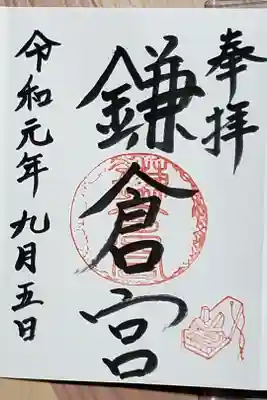 奉拝
鎌倉宮
令和元年九月五日